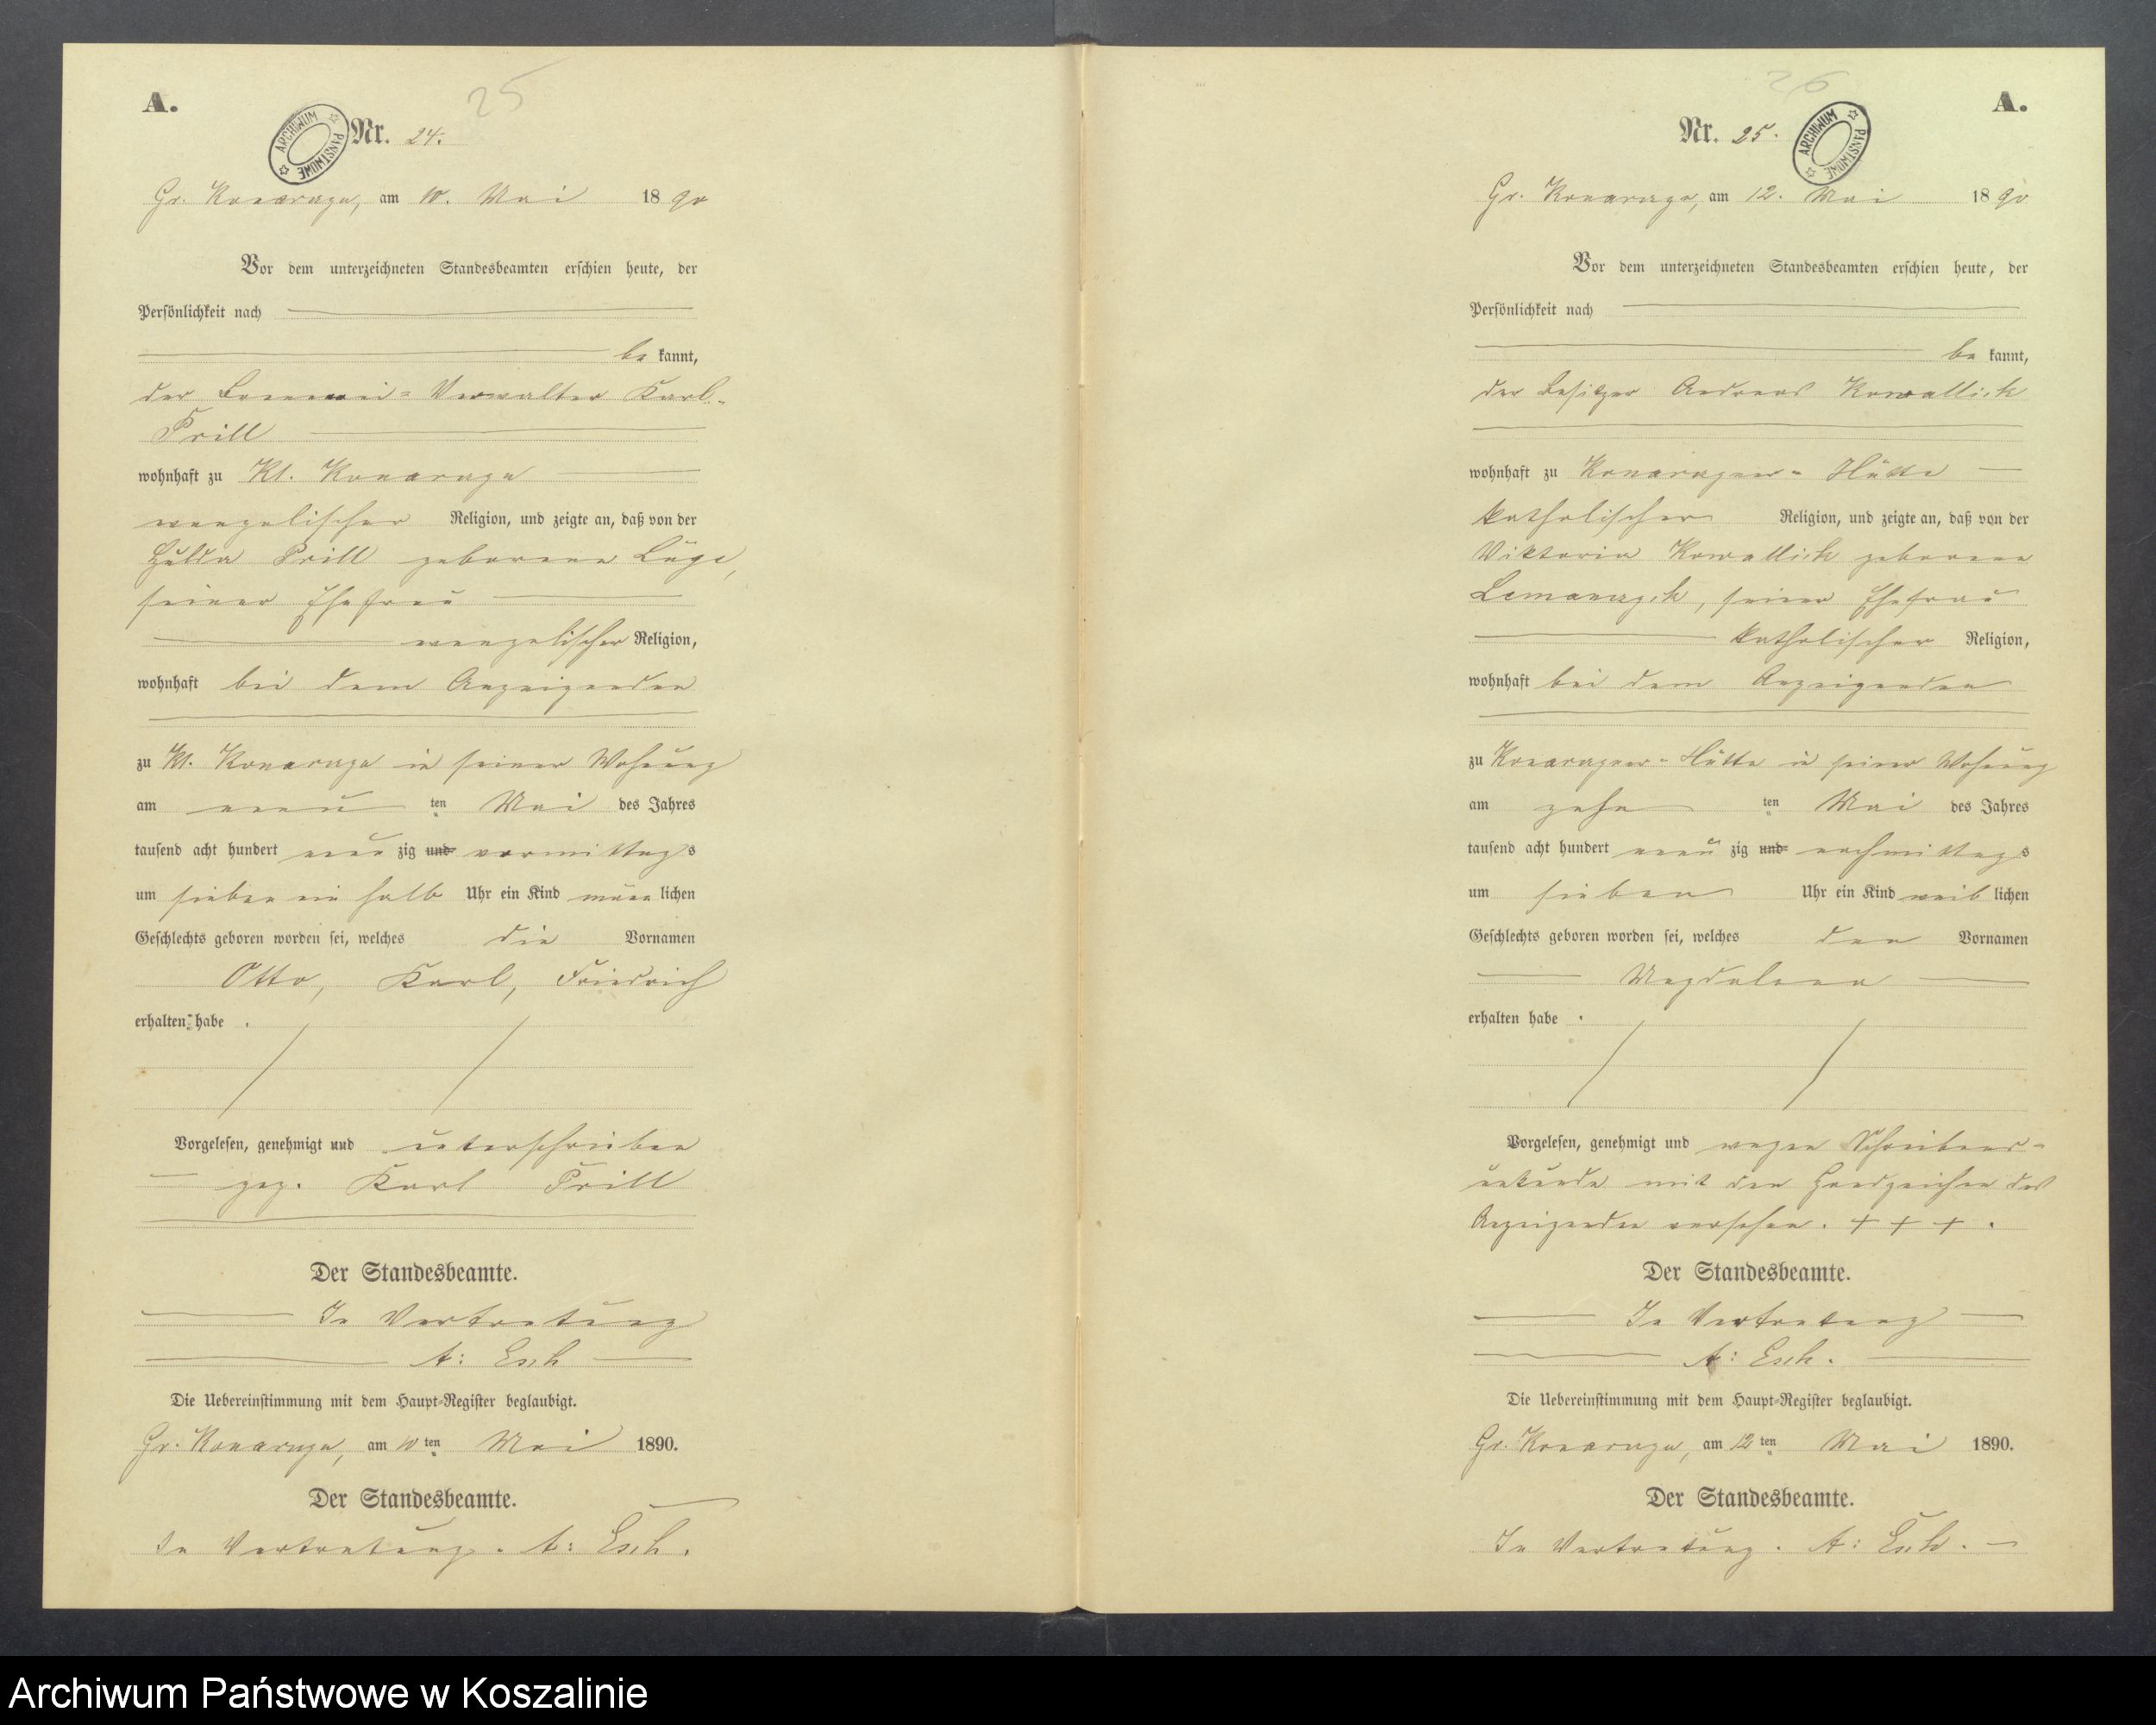 A.
25
ARCHIWUM PAŃSTWOWE
Nr. 24.
Gr. Konarczyn, am 10. Mai 1890
Vor dem unterzeichneten Standesbeamten erschien heute, der
Persönlichkeit nach
be kannt,
der Verwalter Karl
Prill
wohnhaft zu Kl. Konarczyn
evangelischer Religion, und zeigte an, daß von der
Hulda Prill geborene Lüge,
seiner Ehefrau
evangelischer Religion,
wohnhaft bei dem Anzeigenden
zu Kl. Konarczyn in seiner Wohnung
am neun ten Mai des Jahres
tausend acht hundert neun zig und vormittags
um sieben ein halb Uhr ein Kind männ lichen
Geschlechts geboren worden sei, welches die Vornamen
Otto, Karl, Friedrich
erhalten habe.
Vorgelesen, genehmigt und unterschrieben
gez. Karl Prill
Der Standesbeamte.
In Vertretung
A: Esch
Die Uebereinstimmung mit dem Haupt-Register beglaubigt.
Gr. Konarczyn, am 10ten Mai 1890.
Der Standesbeamte.
In Vertretung. A: Esch.
26
A.
Nr. 25.
ARCHIWUM PAŃSTWOWE
Gr. Konarczyn, am 12. Mai 1890
Vor dem unterzeichneten Standesbeamten erschien heute, der
Persönlichkeit nach
be kannt,
der Besitzer Andreas Kowallick
wohnhaft zu Konarczyner-Hütte
katholischer Religion, und zeigte an, daß von der
Viktoria Kowallick geborene
Lemanczyk, seiner Ehefrau
katholischer Religion,
wohnhaft bei dem Anzeigenden
zu Konarczyner-Hütte in seiner Wohnung
am zehn ten Mai des Jahres
tausend acht hundert neun zig und nachmittags
um sieben Uhr ein Kind weib lichen
Geschlechts geboren worden sei, welches den Vornamen
Magdalena
erhalten habe.
Vorgelesen, genehmigt und wegen Schreibens-
unkunde mit den Handzeichen des
Anzeigenden versehen. + + + .
Der Standesbeamte.
In Vertretung
A: Esch.
Die Uebereinstimmung mit dem Haupt-Register beglaubigt.
Gr. Konarczyn, am 12ten Mai 1890.
Der Standesbeamte.
In Vertretung. A: Esch.
Archiwum Państwowe w Koszalinie